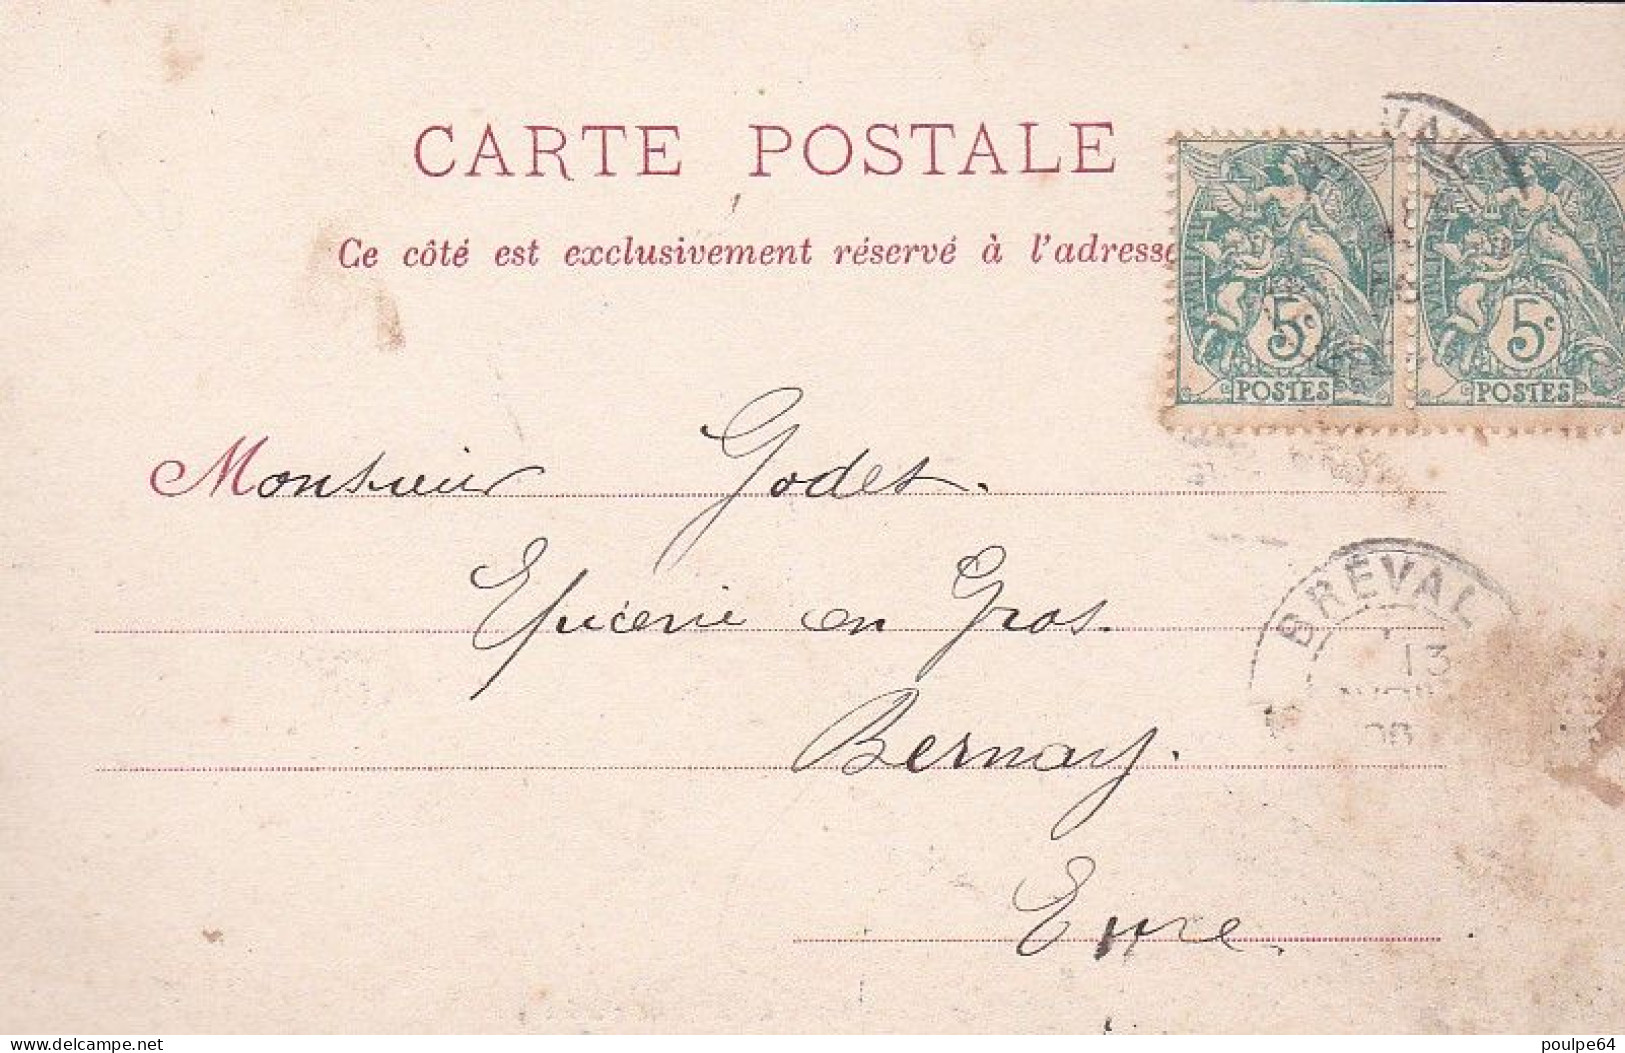 CARTE POSTALE
Ce côté est exclusivement réservé à l'adresse
5c 5c
POSTES POSTES
Monsieur Godet.
Epicerie en Gros.
BRÉVAL
13
Bernay.
Eure.
delcampe.net
poulpe64